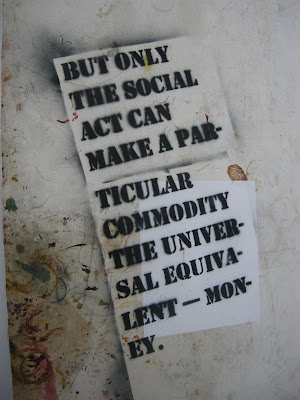 BUT ONLY
THE SOCIAL
ACT CAN
MAKE A PAR-
TICULAR
COMMODITY
THE UNIVER-
SAL EQUIVA-
LENT — MON-
EY.